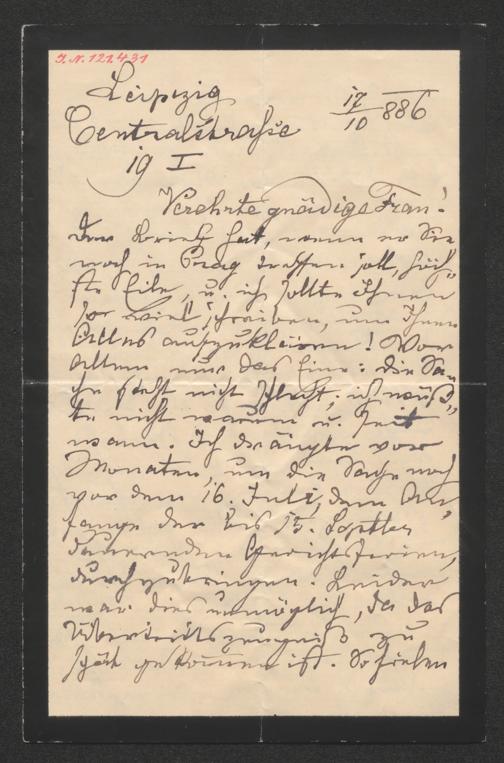 J. N. 121.431
Leipzig 17/10 886
Centralstraße
19 I
Verehrte gnädige Frau!
Der Brief hat, wenn er Sie
noch in Prag treffen soll, höch-
ste Eile, u. ich sollte Ihnen
so viel schreiben, um Ihnen
Alles aufzuklären! Vor
allem nur das Eine: die Sa-
che steht nicht schlecht; ich wüß-
te nicht warum u. seit
wann. Ich drängte vor
Monaten, um die Sache noch
vor dem 16. Juli, dem An-
fange der bis 15. Septber
dauernden Gerichtsferien,
durchzubringen. Leider
war dies unmöglich, da das
Übertrittszeugniß zu
spät gekommen ist. So fielen